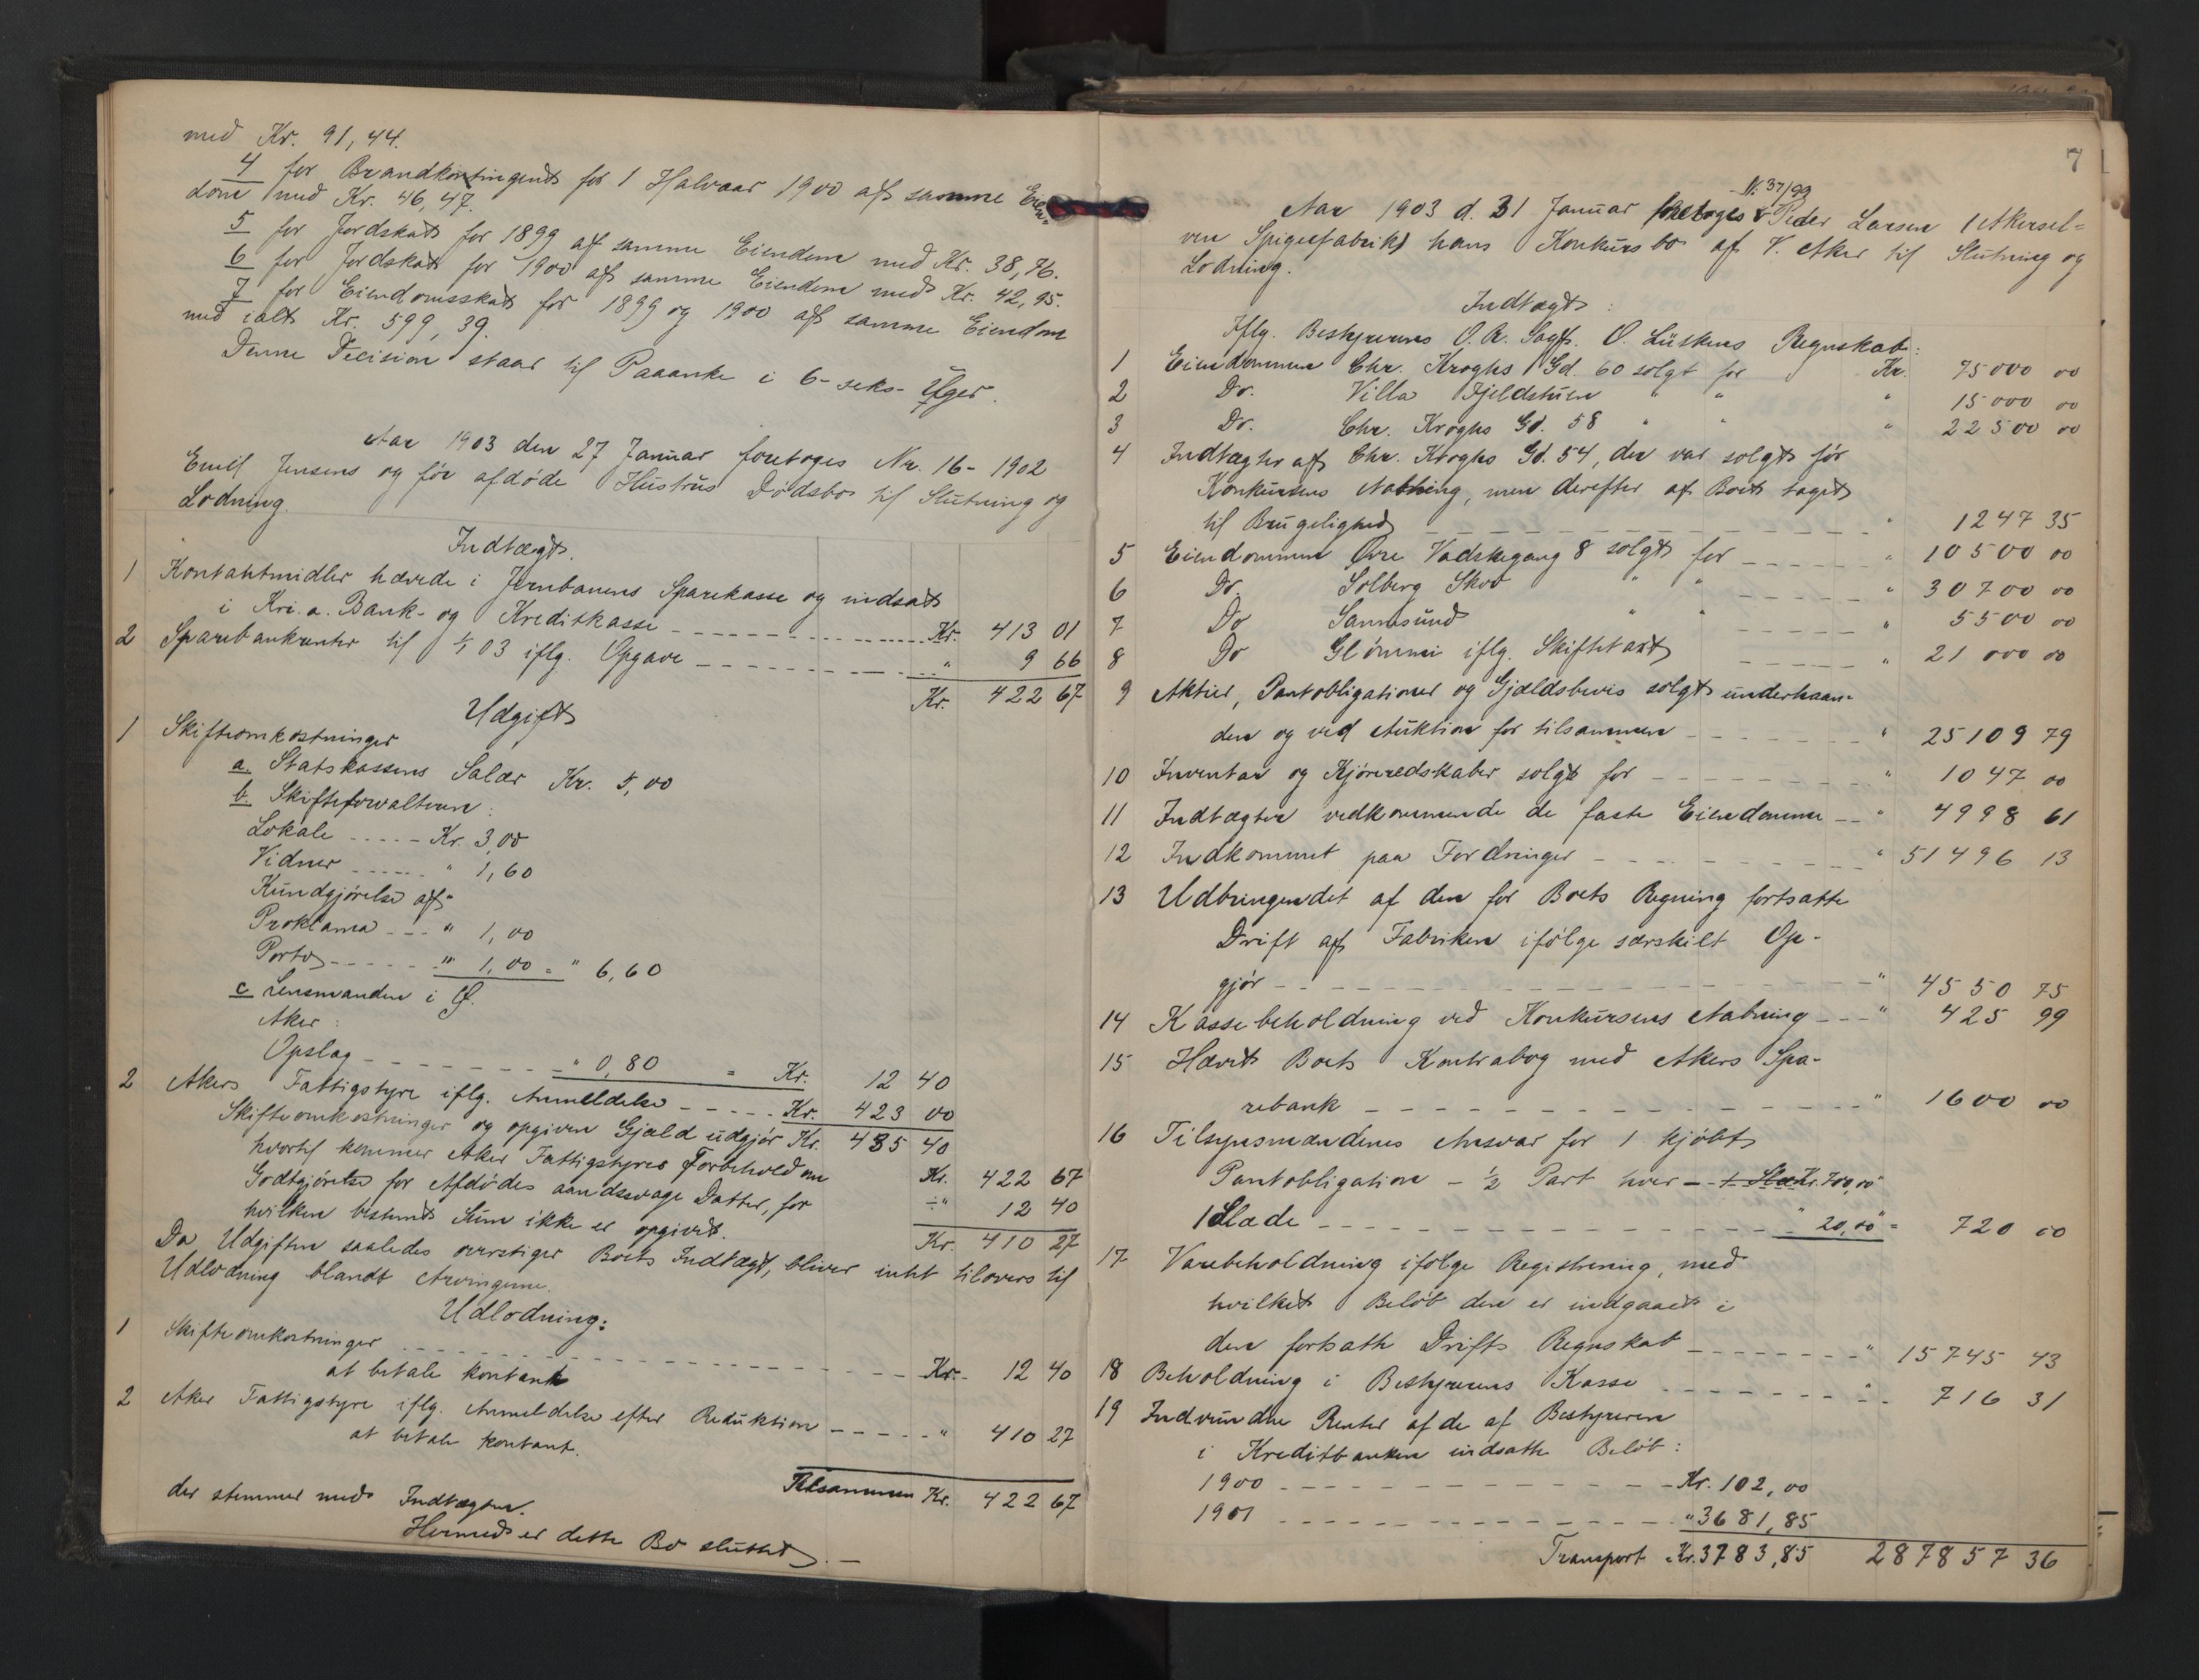 med Kr. 91,44.
4 for Brandkontingent for 1 Halvaar 1900 af samme Eien-
dom med Kr. 46,47.
5 for Jordskat for 1899 af samme Eiendom med Kr. 38,76.
6 for Jordskat for 1900 af samme Eiendom med Kr. 42,95.
7 for Eiendomsskat for 1899 og 1900 af samme Eiendom
med ialt Kr. 599,39.
Denne Decision staar til Paaanke i 6-seks- Uger.
Aar 1903 den 27 Januar foretoges Nr. 16-1902
Emil Jensens og før afdøde Hustrus Dødsbo til Slutning og
Lodning.
Indtægt.
1 Kontantmidler hævede i Jernbanens Sparekasse og indsat
i Kri.a. Bank- og Kreditkasse Kr. 413 01
2 Sparebankrenter til 1/1 03 iflg. Opgave " 9 66
Kr. 422 67
Udgift
1 Skifteomkostninger
a. Statskassens Salær Kr. 5,00
b. Skifteforvalteren:
Lokale Kr. 3,00
Vidner " 1,60
Kundgjørelse af
Proklama " 1,00
Porto " 1,00 = " 6,60
c Lensmanden i Ø.
Aker:
Opslag " 0,80 = Kr. 12 40
2 Akers Fattigstyre iflg. Anmeldelse Kr. 423 00
Skifteomkostninger og opgiven Gjæld udgjør Kr. 435 40
hvortil kommer Aker Fattigstyres Forbehold om Kr. 422 67
Godtgjørelse for Afdødes aandssvage Datter, for ÷ " 12 40
hvilken bestemt Sum ikke er opgivet. Kr. 410 27
Da Udgiften saaledes overstiger Boets Indtægt, bliver intet tilovers til
Udlodning blandt Arvingerne.
Udlodning:
1 Skifteomkostninger Kr. 12 40
at betale kontant
2 Aker Fattigstyre iflg. Anmeldelse efter Reduktion " 410 27
at betale kontant.
Tilsammen Kr. 422 67
der stemmer med Indtægten.
Hermed er dette Bo sluttet.
7
N: 37/99
Aar 1903 d. 31 Januar foretoges Peder Larsen (Akersel-
ven Spigerfabrik) hans Konkursbo af V. Aker til Slutning og
Lodning.
Indtægt:
Iflg. Bestyrerens O.R. Sagf. O. Lütkens Regnskab:
1 Eiendommen Chr. Kroghs Gd. 60 solgt for Kr. 75000 00
2 Do. Villa Fjeldstuen " " " 15000 00
3 Do. Chr. Kroghs Gd. 58 " " " 22500 00
4 Indtægter af Chr. Kroghs Gd. 54, der var solgt før
Konkursens Aabning, men derefter af Boet taget
til Brugelighed " 1247 35
5 Eiendommen Øvre Vadskegang 8 solgt for " 10500 00
6 Do. Solberg Skov " " " 30700 00
7 Do Sannesund " " " 5500 00
8 Do Glømmi iflg. Skiftetaxt " 21000 00
9 Aktier, Pantobligationer og Gjældsbevis solgt underhaan-
den og ved Auktion for tilsammen " 25109 79
10 Inventar og Kjøreredskaber solgt for " 1047 00
11 Indtægter vedkommende de faste Eiendomme " 4998 61
12 Indkommet paa Fordringer " 51496 13
13 Udbringendet af den for Boets Regning fortsatte
Drift af Fabriken ifølge særskilt Op-
gjør " 4550 75
14 Kassebeholdning ved Konkursens Aabning " 425 99
15 Hævet Boets Kontrabog med Akers Spa-
rebank " 1600 00
16 Tilsynsmændenes Ansvar for 1 kjøbt
Pantobligation - 1/2 Part hver - Kr. 700,00
1 Slæde " 20,00 = 720 00
17 Varebeholdning ifølge Registrering, med
hvilket Beløb den er indgaaet i
den fortsatte Drifts Regnskab " 15745 43
18 Beholdning i Bestyrerens Kasse " 716 31
19 Indvundne Renter af de af Bestyreren
i Kreditbanken indsatte Beløb:
1900 Kr. 102,00
1901 " 3681,85
Transport Kr. 3783,85 287857 36